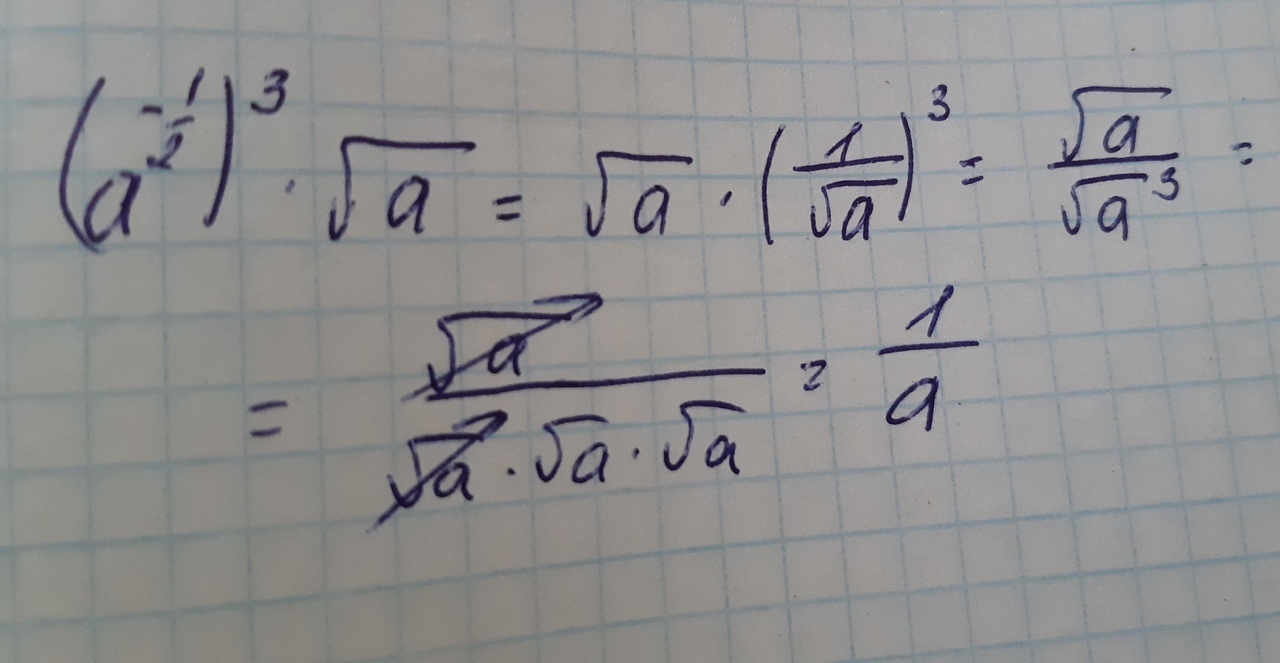 (a^{-\frac{1}{2}})^3 · √a = √a · (\frac{1}{√a})^3 = \frac{√a}{√a^3} =
= \frac{√a}{√a · √a · √a} = \frac{1}{a}